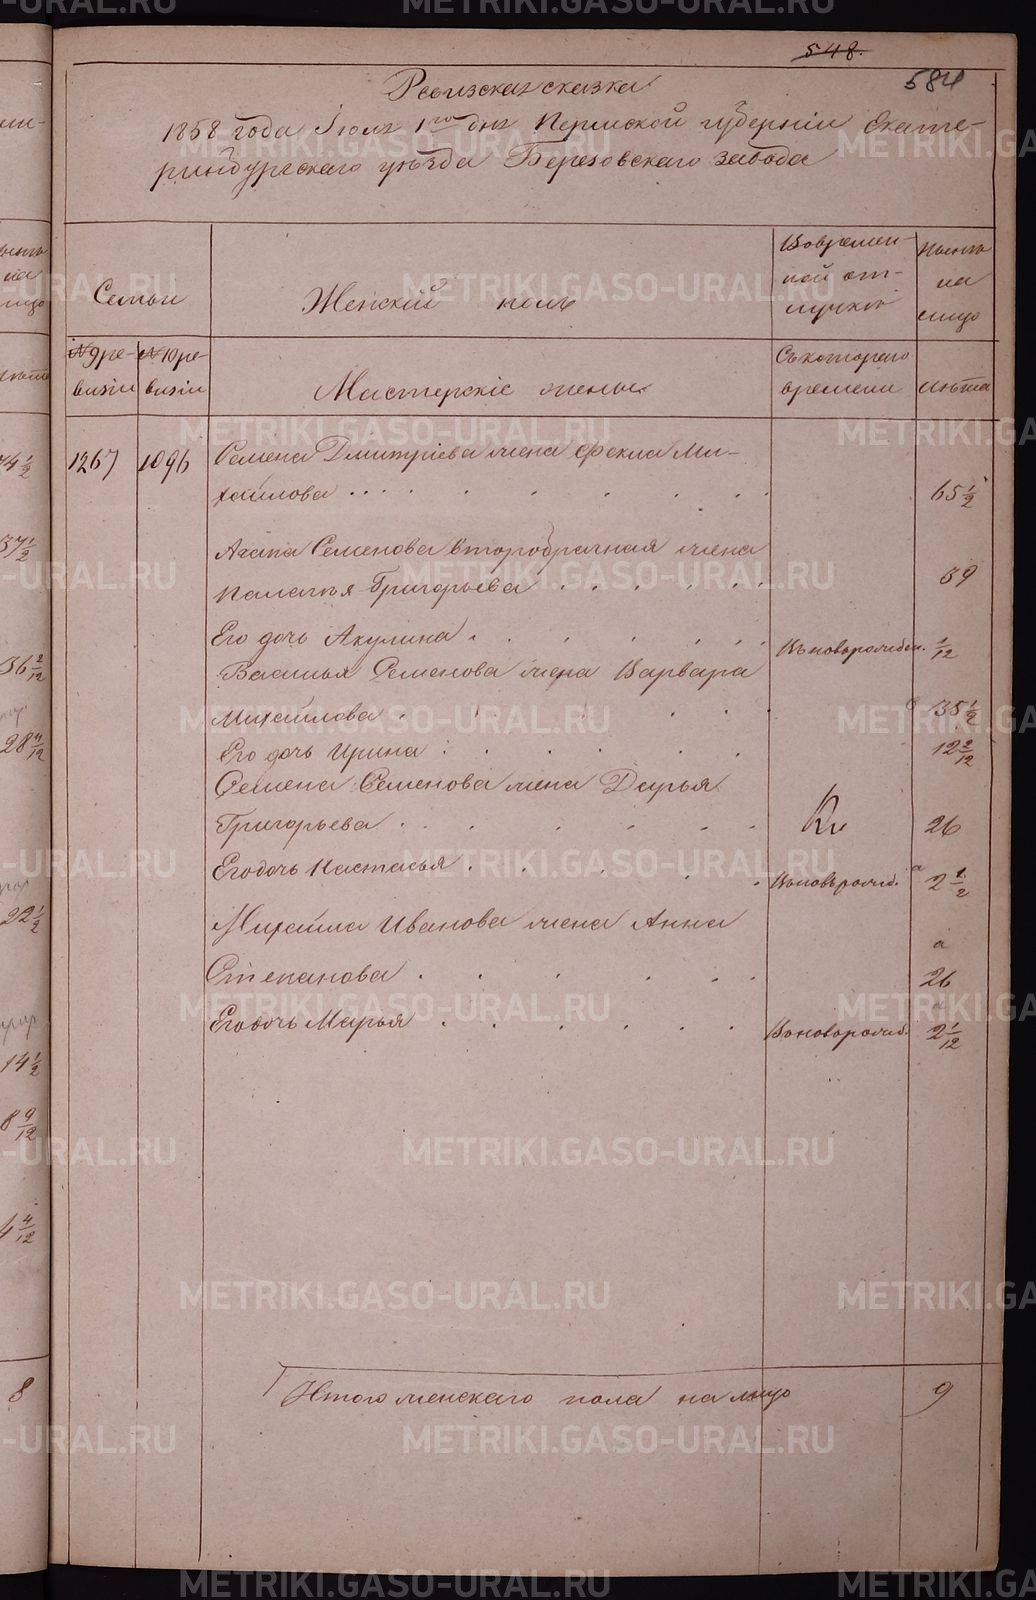 548.
584
Ревизская сказка
1858 года Іюля 1го дня Пермской губерніи Екате-
ринбургскаго уѣзда Березовскаго завода
Семьи
Женскій полъ
Вовремен-
ной от-
лучкѣ
Ныне
на
лицо
№ 9 ре-
визіи
№ 10 ре-
визіи
Мастерскіе жены
Съкотораго
времени
Лѣта
1267
1096
Семена Дмитріева жена Фекла Ми-
хайлова
65 1/2
Агапа Семенова второбрачная жена
Наталья Григорьева
39
Его дочь Акулина
1/12
Василья Семенова жена Варвара
Михайлова
35 1/2
Его дочь Ирина
12 2/12
Семена Семенова жена Дарья
Григорьева
26
Егодочь Настасья
Вновьрожд.
2 1/2
Михайла Иванова жена Анна
Степанова
26
Егодочь Марья
Вноворожд.
2 1/12
Итого женскаго пола на лицо
9
37 1/2
36 2/12
28 4/12
22 1/2
14 1/2
8 9/12
4/12
8
METRIKI.GASO-URAL.RU